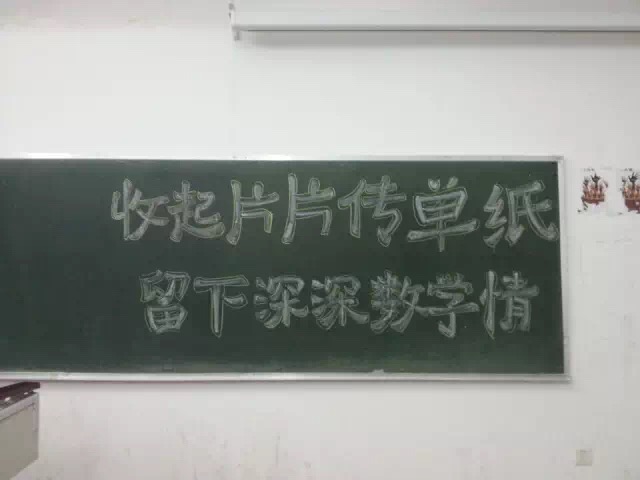 收起片片传单纸
留下深深数学情